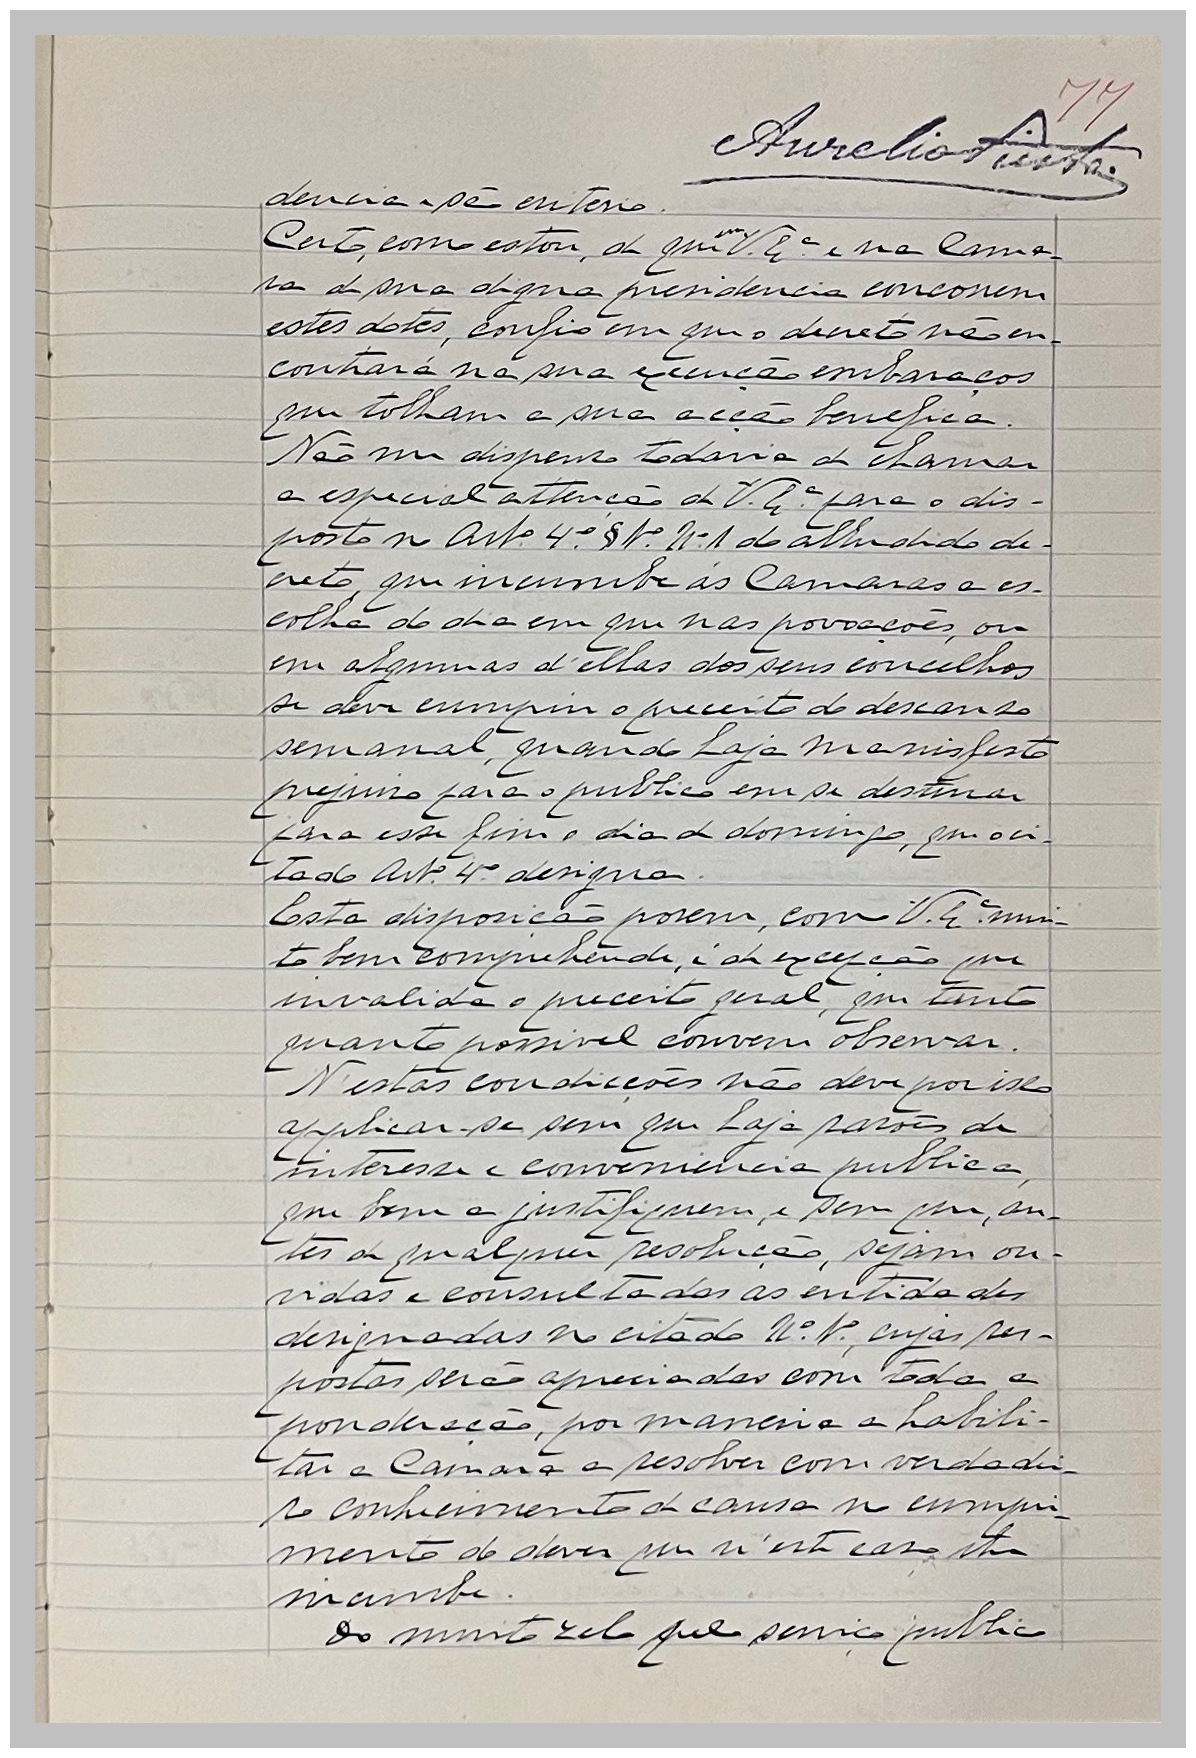 77
Aurelio Pinto.
dencia e são criterio.
Certo, como estou, de que em V. Ex.ª e na Cama-
ra de sua digna presidencia concorrem
estes dotes, confio em que o decreto não en-
contrará na sua execução embaraços
que tolham a sua acção benefica.
Não me dispenso todavia de chamar
a especial attenção de V. Ex.ª para o dis-
posto no Art.º 4.º § 1.º N.º 1 do alludido de-
creto, que incumbe ás Camaras a es-
colha do dia em que nas povoações, ou
em algumas d'ellas dos seus concelhos
se deve cumprir o preceito do descanso
semanal, quando haja manisfesto
prejuizo para o publico em se destinar
para esse fim o dia de domingo, que o ci-
tado Art.º 4.º designa.
Esta disposição porem, como V. Ex.ª mui-
to bem comprehende, é de excepção que
invalida o preceito geral, que tanto
quanto possivel convem observar.
N'estas condicções não deve por isso
applicar-se sem que haja rasões de
interesse e conveniencia publica,
que bem a justifiquem, e sem que, an-
tes de qualquer resolução, sejam ou-
vidas e consultadas as entidades
designadas no citado N.º 1.º, cujas res-
postas serão apreciadas com toda a
ponderação, por maneira a habili-
tar a Camara a resolver com verdadei-
ro conhecimento de causa no cumpri-
mento do dever que n'este caso lhe
incumbe.
Do muito zelo pelo serviço publico